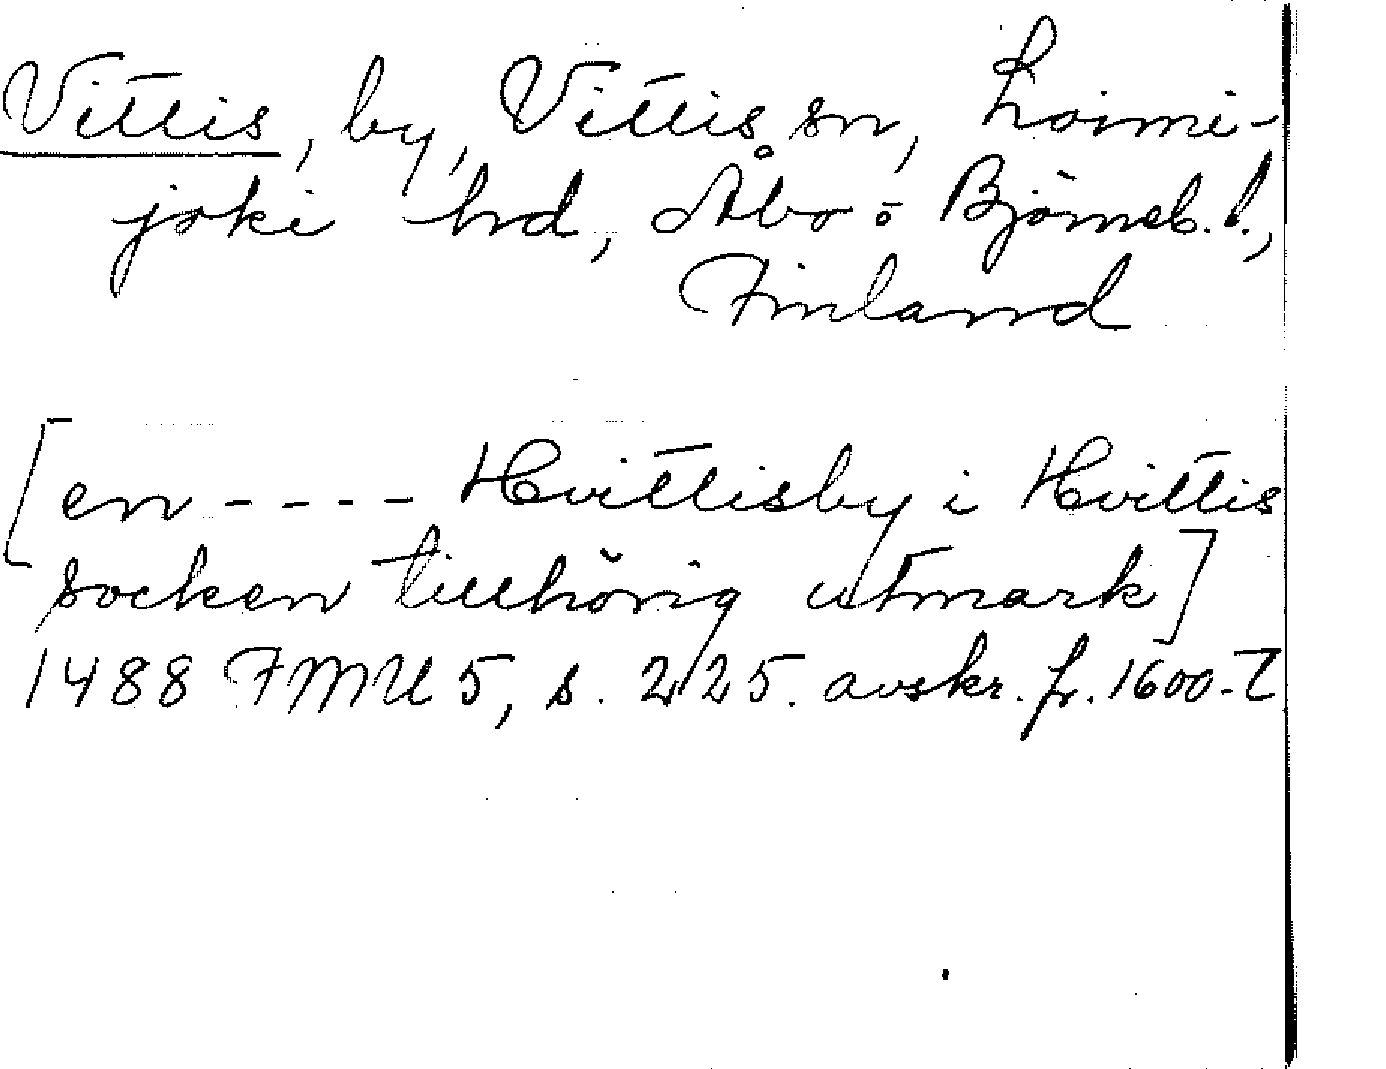 Vittis, by, Vittis sn, Loimi-
joki hd, Åbo o Björneb. l.,
Finland
[en - - - - Hvittisby i Hvittis
socken tillhörig utmark]
1488 FMU 5, s. 225. avskr. fr. 1600-t